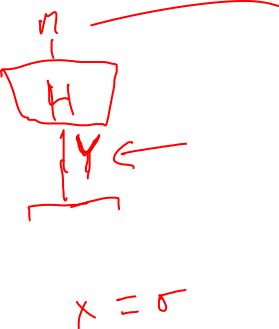 m
H
Y
x = σ